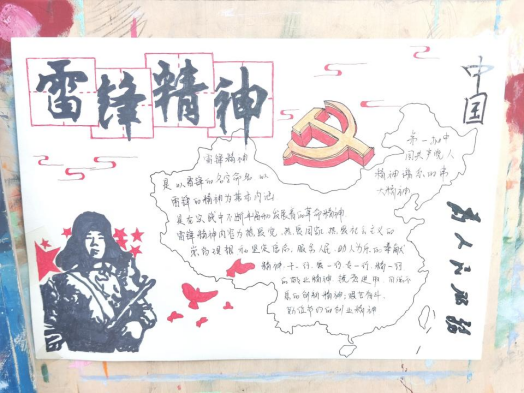 雷锋精神
中国
雷锋精神
是以雷锋的名字命名、以
雷锋的精神为基本内涵
在实践中不断丰富和发展着的革命精神
雷锋精神内容为热爱党、热爱国家、热爱社会主义的
崇高理想和坚定信念、服务人民、助人为乐的奉献
精神、干一行、爱一行、专一行、精一行
的敬业精神、锐意进取、自强不
息的创新精神、艰苦奋斗、
勤俭节约的创业精神
第一批中
国共产党人
精神谱系的伟
大精神
为人民服务